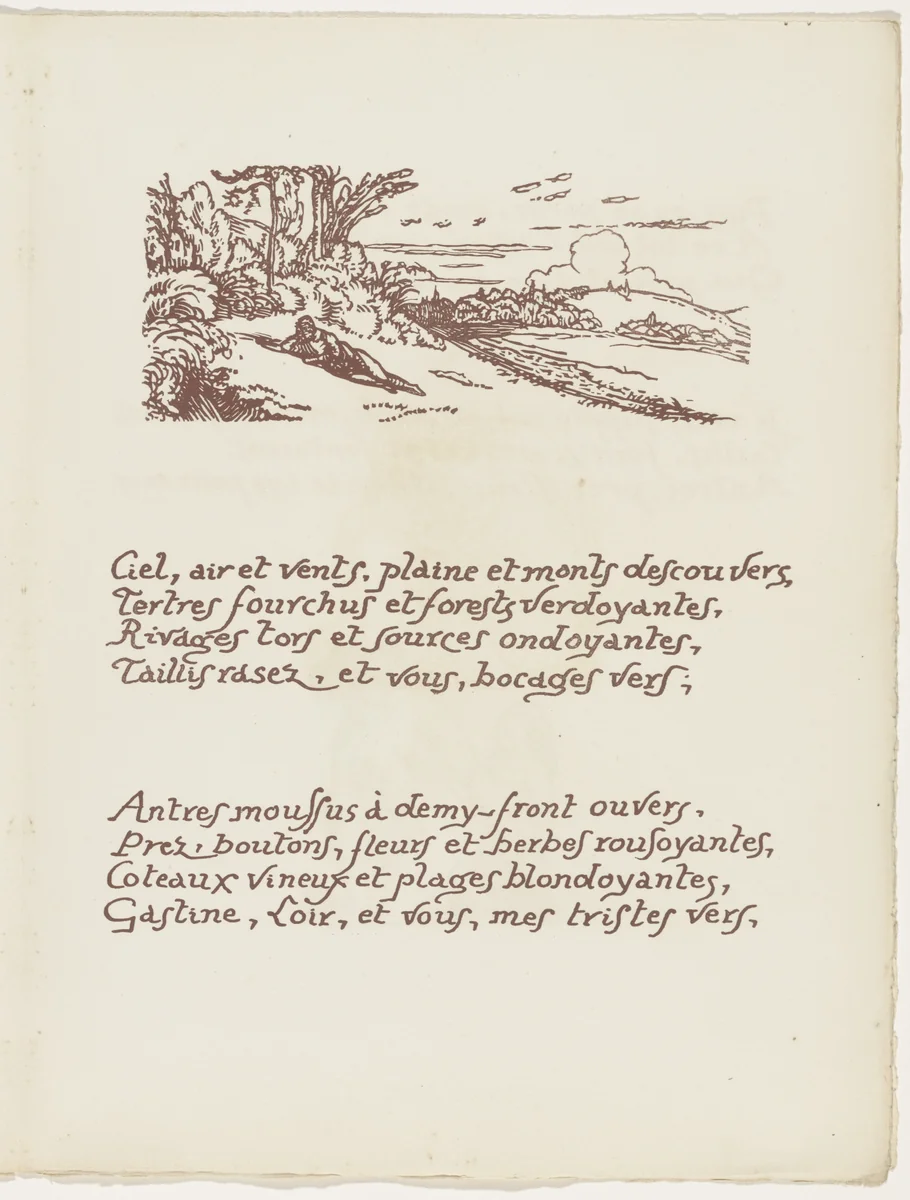 Ciel, air et vents, plaine et monts descouvers,
Tertres fourchus et forests verdoyantes,
Rivages tors et sources ondoyantes,
Taillis rasez, et vous, bocages vers;
Antres moussus à demy-front ouvers,
Prez, boutons, fleurs et herbes rousoyantes,
Coteaux vineux et plages blondoyantes,
Gastine, Loir, et vous, mes tristes vers,